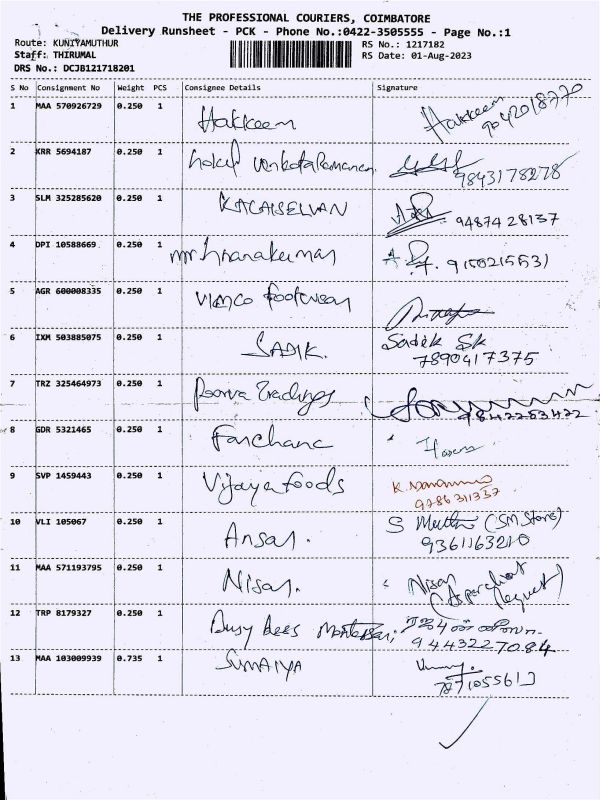 THE PROFESSIONAL COURIERS, COIMBATORE
Delivery Runsheet - PCK - Phone No.:0422-3505555 - Page No.:1
Route: KUNIYAMUTHUR RS No.: 1217182
Staff: THIRUMAL RS Date: 01-Aug-2023
DRS No.: DCJB121718201
S No Consignment No Weight PCS Consignee Details Signature
1 MAA 570926729 0.250 1 Hakkeem Hakkeem
9042018770
2 KRR 5694187 0.250 1
9843178278
3 SLM 325285620 0.250 1 KALAISELVAN 9487428137
4 DPI 10588669 0.250 1
5 AGR 600008335 0.250 1 Vimco footwear
6 IXM 503885075 0.250 1 SADIK. Sadik Sk
7890417375
7 TRZ 325464973 0.250 1 Poorva Tradings
9842253422
8 GDR 5321465 0.250 1 Farchana
9 SVP 1459443 0.250 1 Vijaya foods K.
9786311337
10 VLI 105067 0.250 1 Ansar. S Muthu (SM Store)
9361163210
11 MAA 571193795 0.250 1 Nisar. Nisar
Request)
12 TRP 8179327 0.250 1 Busy Bees Montessari
9443227084
13 MAA 103009939 0.735 1 SUMAIYA